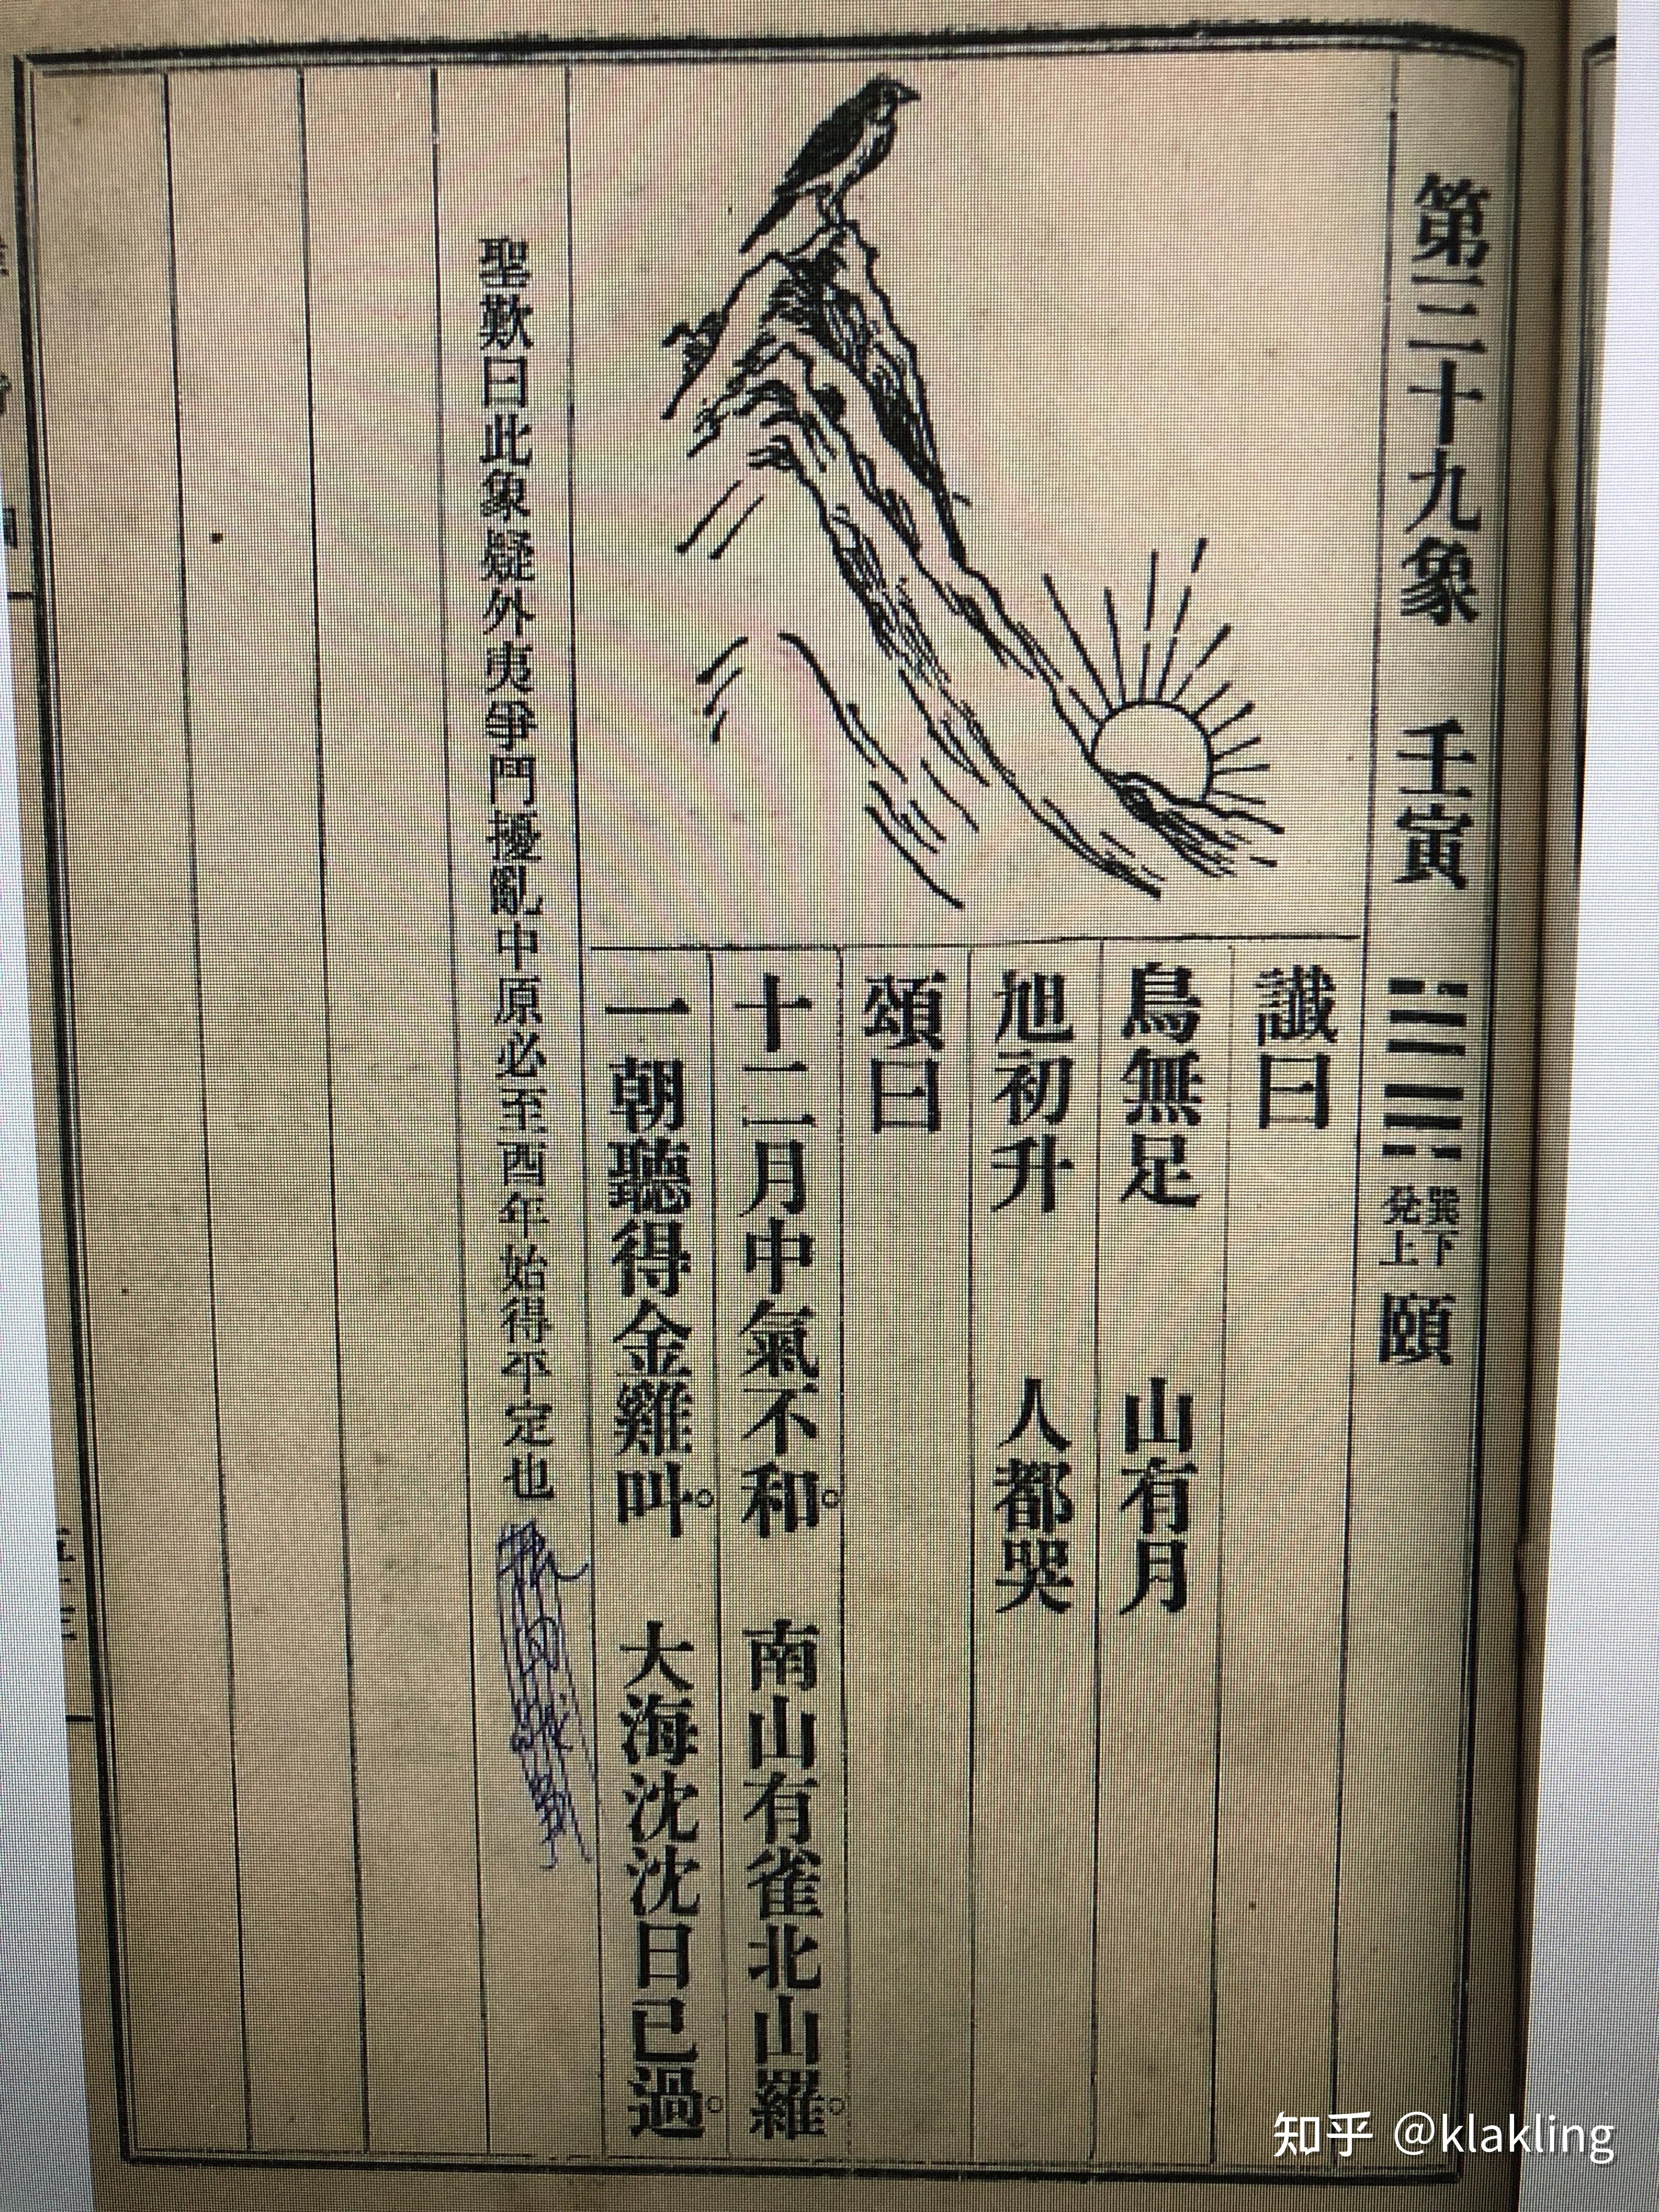 第三十九象　壬寅　巽下兌上　頤
讖曰
鳥無足　山有月
旭初升　人都哭
頌曰
十二月中氣不和。　南山有雀北山羅。
一朝聽得金雞叫。　大海沈沈日已過。
聖歎曰此象疑外夷爭鬥擾亂中原必至酉年始得平定也
知乎 @klakling